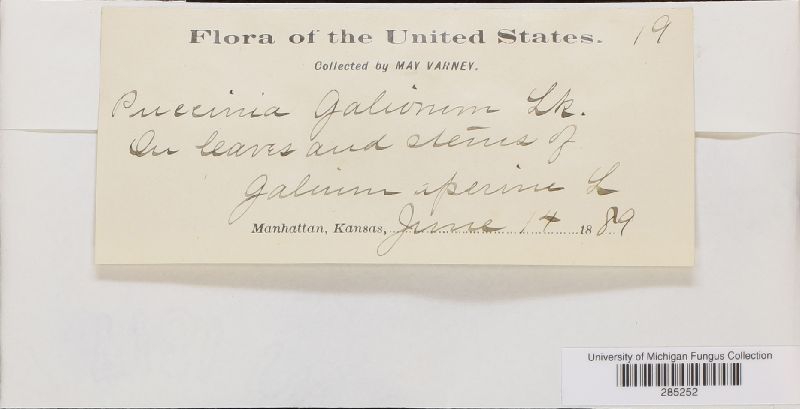 Flora of the United States. 19
Collected by MAY VARNEY.
Puccinia Galiorum Lk.
On leaves and stems of
Galium aperine L
Manhattan, Kansas, June 14 1889
University of Michigan Fungus Collection
285252